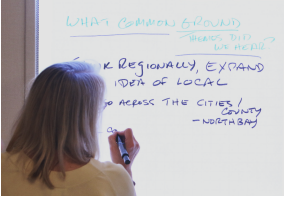 WHAT COMMON GROUND
THEMES DID
WE HEAR?
REGIONALLY, EXPAND
IDEA OF LOCAL
GO ACROSS THE CITIES/
COUNTY
- NORTHBAY